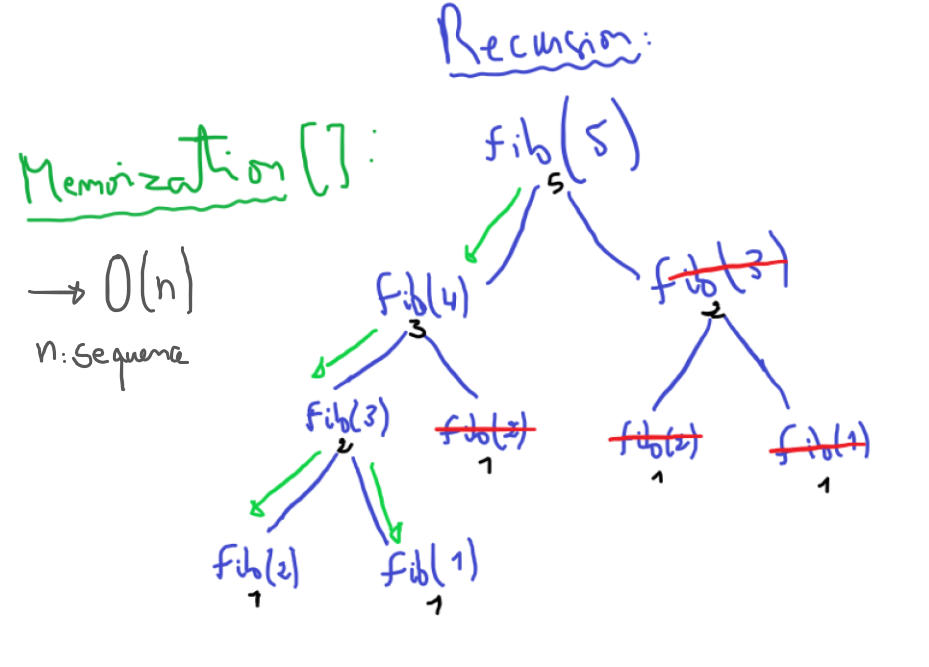 Recursion:
fib(5)
5
Memoization []:
→ O(n)
n: sequence
fib(4)
3
fib(3)
2
fib(3)
2
fib(2)
1
fib(2)
1
fib(1)
1
fib(2)
1
fib(1)
1